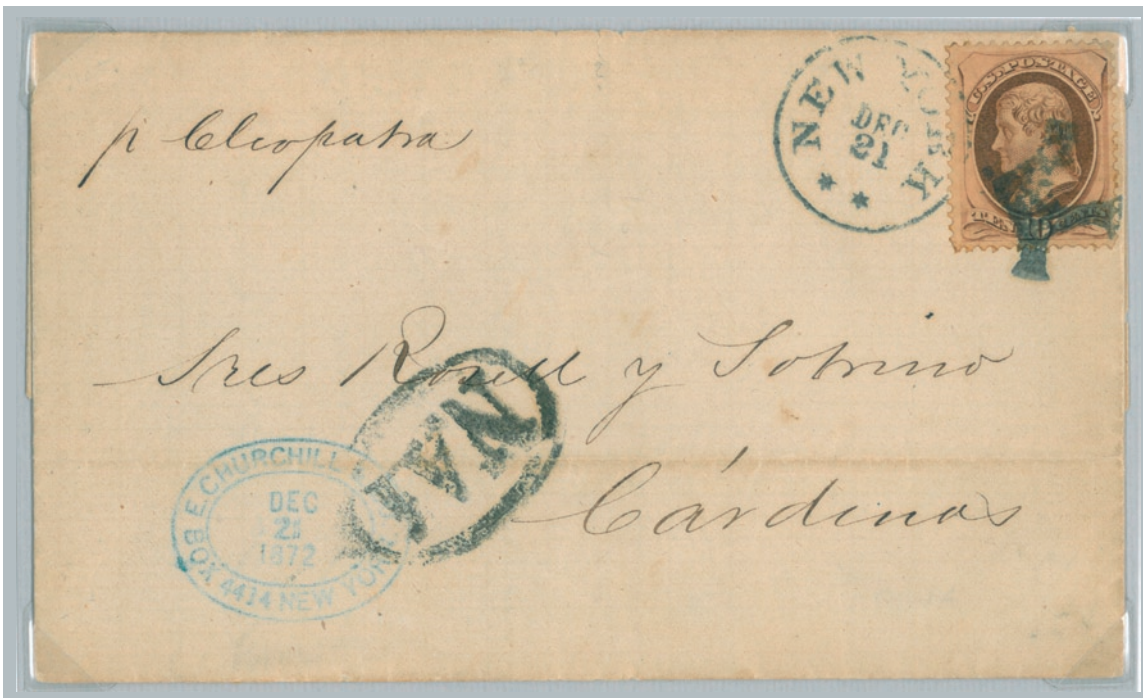 p Cleopatra
NEW YORK
DEC
21
U.S. POSTAGE
10
Sres Rosell y Sobrino
NA1
Cárdenas
E. CHURCHILL
DEC
21
1872
BOX 4414 NEW YORK